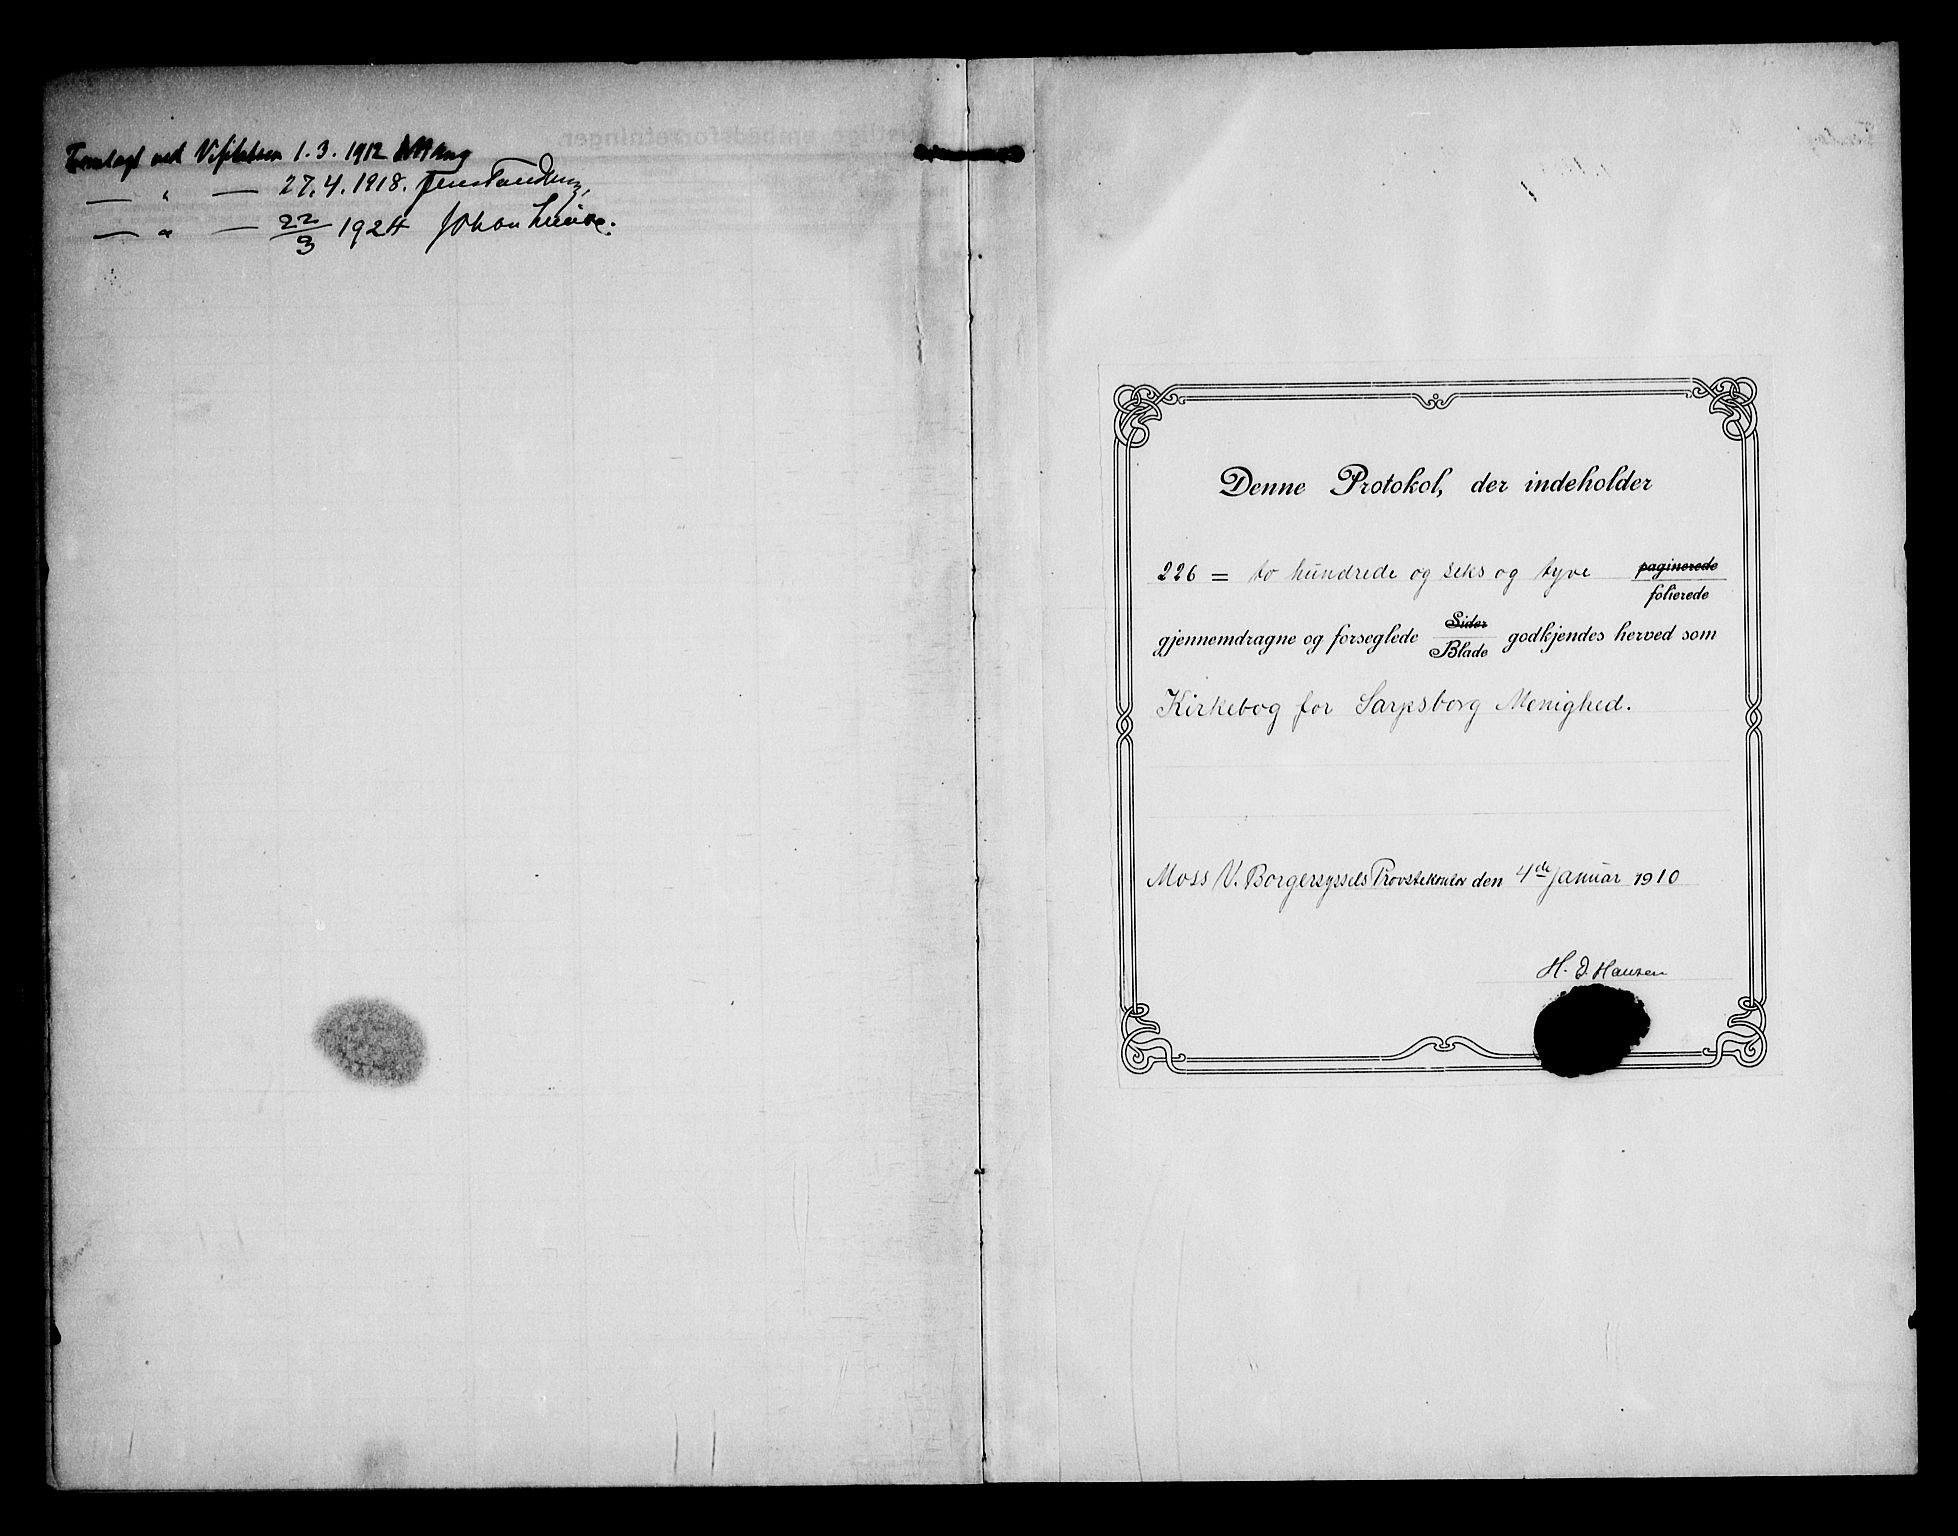 Fremlagt ved Visitatsen 1. 3. 1912
— " — 27. 4. 1918. Jens Tandberg,
— " — 22/3 1924 Johan Lunde.
Denne Protokol, der indeholder
226 = to hundrede og seks og tyve paginerede
folierede
gjennemdragne og forseglede Sider godkjendes herved som
Blade
Kirkebog for Sarpsborg Menighed.
Moss V. Borgersyssels Provstekontor den 4de Januar 1910
H. D. Hansen